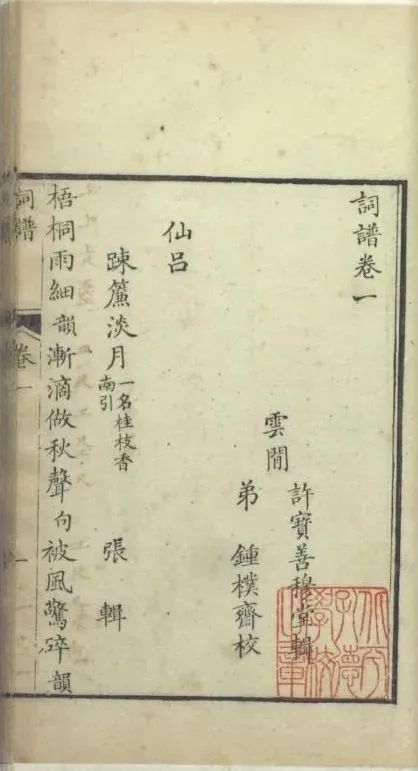 詞譜卷一
雲閒
許寶善穆堂輯
弟 鍾樸齋校
仙呂
踈簾淡月 一名桂枝香 南引 張輯
梧桐雨細韻漸滴做秋聲句被風驚碎韻
詞譜 卷一
北京孔德學校之章